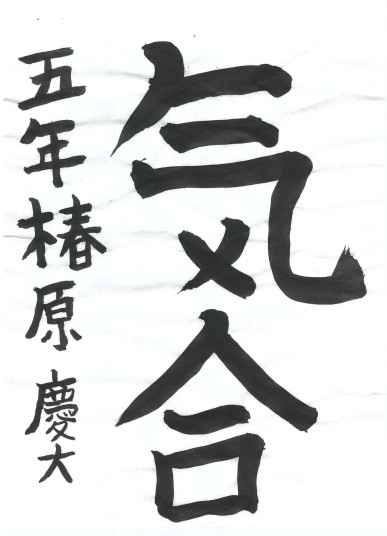 気合
五年椿原慶大